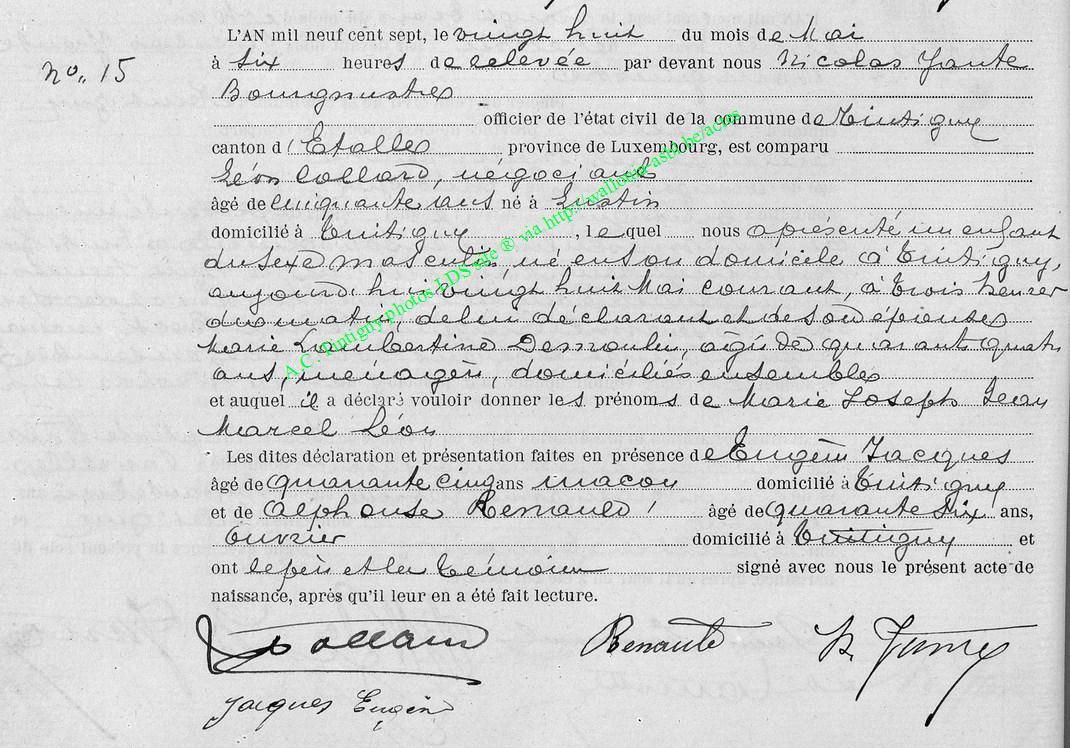 L'AN mil neuf cent sept, le vingt huit du mois de Mai
no. 15
à six heures de relevée par devant nous Nicolas
Bourgmestre
officier de l'état civil de la commune de Tintigny
canton d'Etalle province de Luxembourg, est comparu
Léon Collard, négociant
âgé de cinquante ans né à Lustin
domicilié à Tintigny, lequel nous a présenté un enfant
du sexe masculin, né en son domicile à Tintigny,
aujourd'hui vingt huit Mai courant, à trois heures
du matin, de lui déclarant et de son épouse
Marie Lambertine Demoulin, âgée de quarante quatre
ans, ménagère, domiciliés ensembles
et auquel il a déclaré vouloir donner les prénoms de Marie Joseph Jean
Marcel Léon
Les dites déclaration et présentation faites en présence de Eugène Jacques
âgé de quarante cinq ans maçon domicilié à Tintigny
et de Alphonse Renauld âgé de quarante six ans,
ouvrier domicilié à Tintigny et
ont le père et les témoins signé avec nous le présent acte de
naissance, après qu'il leur en a été fait lecture.
Collard Renauld
Jacques Eugène
A.C. Tintigny photos LDS site ® via http://wallonia-asbl.be/actes